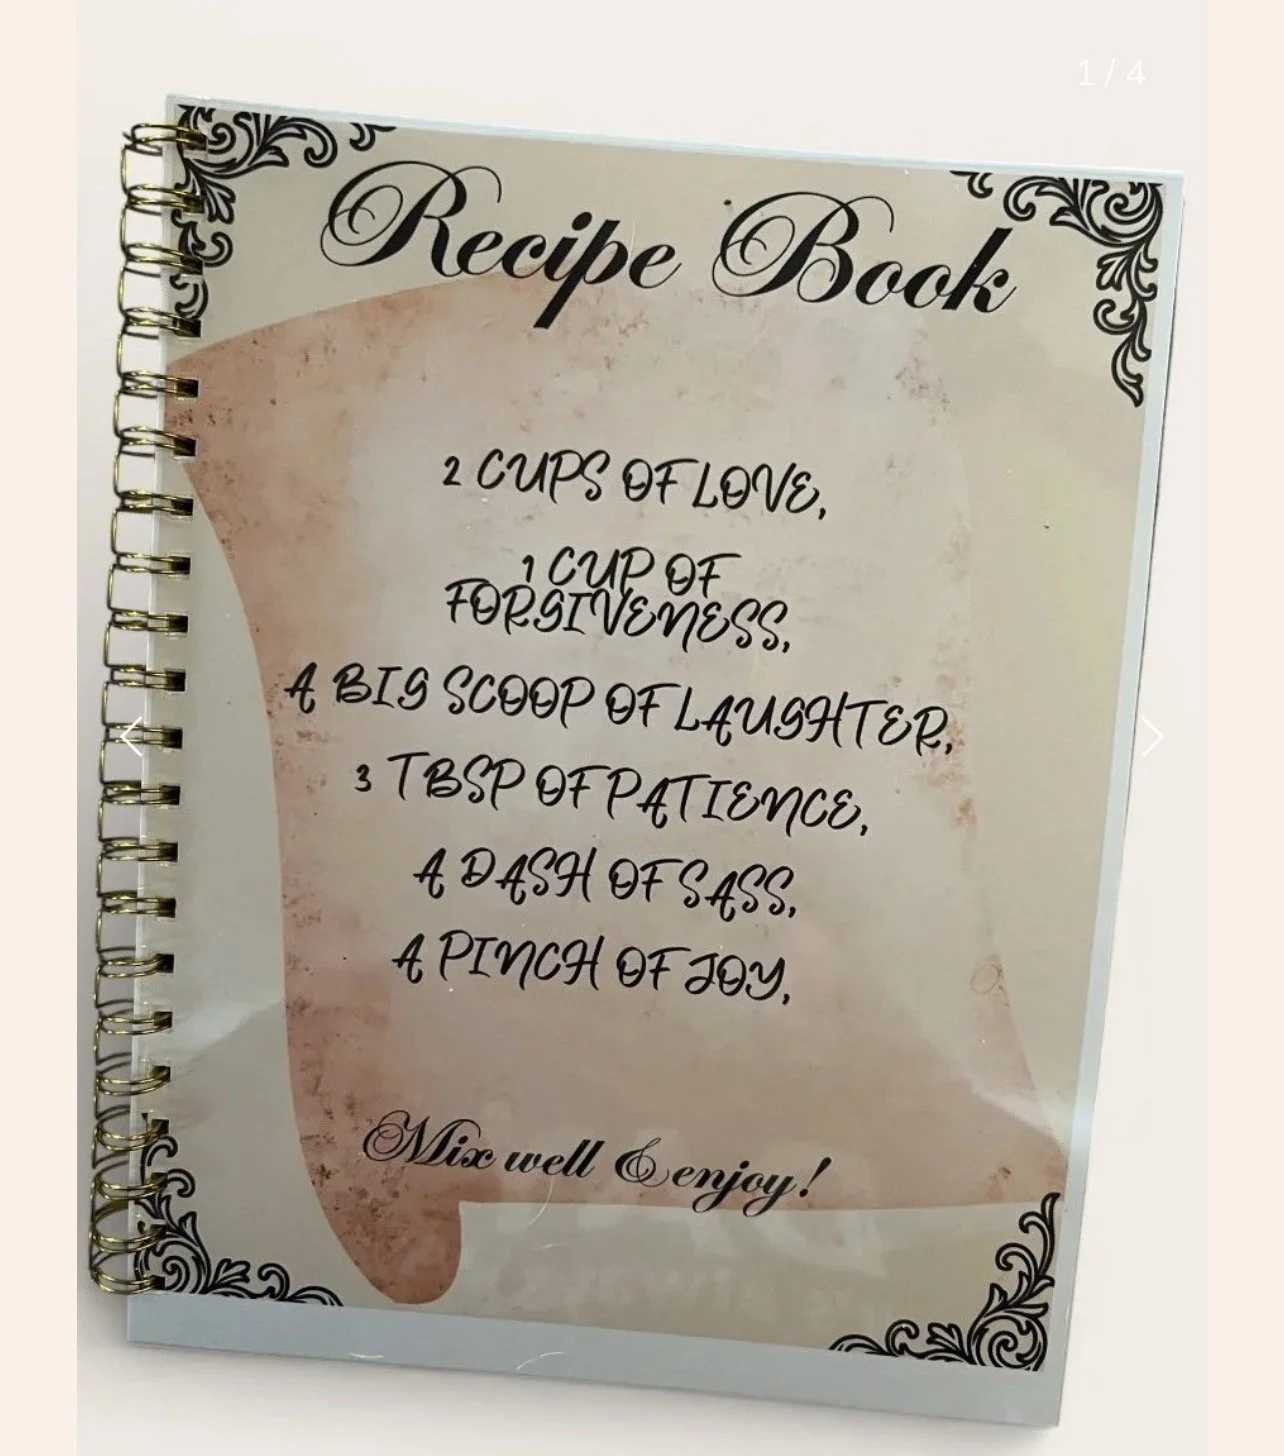 1 / 4
Recipe Book
2 CUPS OF LOVE,
1 CUP OF
FORGIVENESS,
A BIG SCOOP OF LAUGHTER,
3 TBSP OF PATIENCE,
A DASH OF SASS,
A PINCH OF JOY,
Mix well & enjoy!